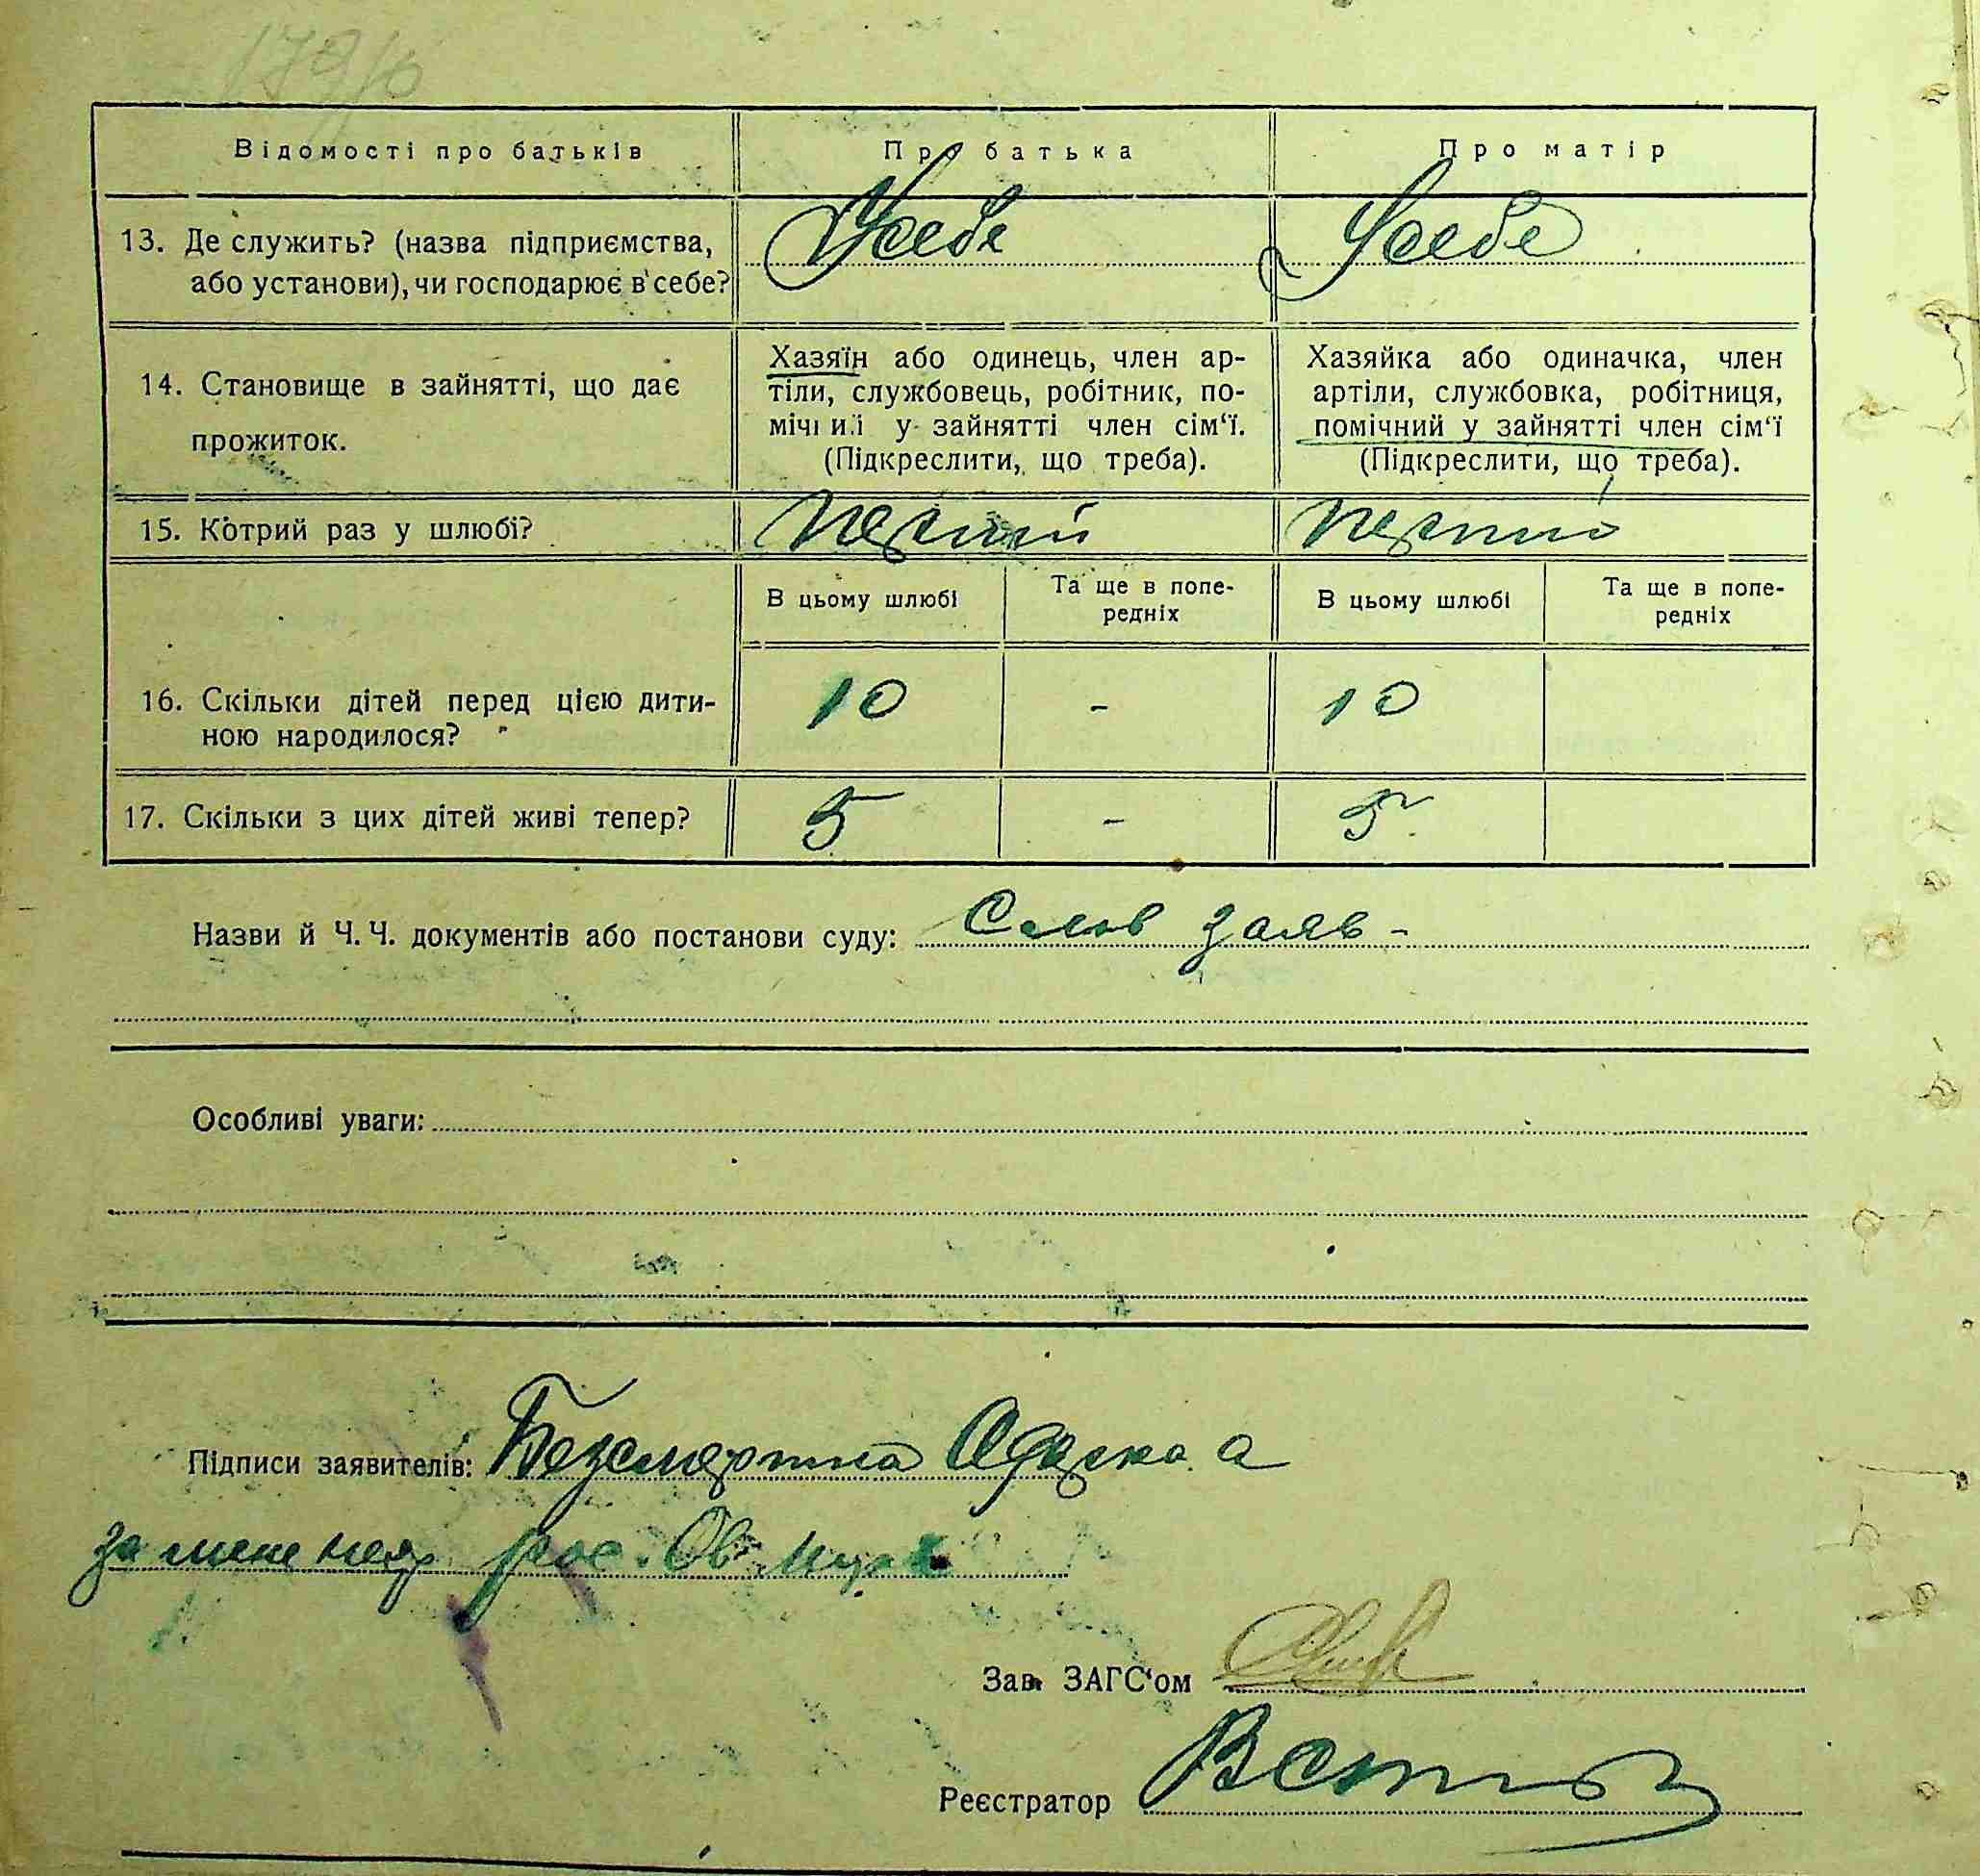 179/б
Відомості про батьків
Про батька
Про матір
13. Де служить? (назва підприємства,
або установи), чи господарює в себе?
У себе
У себе
14. Становище в зайнятті, що дає
прожиток.
Хазяїн або одинець, член ар-
тіли, службовець, робітник, по-
мічний у зайнятті член сім'ї.
(Підкреслити, що треба).
Хазяйка або одиначка, член
артіли, службовка, робітниця,
помічний у зайнятті член сім'ї
(Підкреслити, що треба).
15. Котрий раз у шлюбі?
перший
перший
В цьому шлюбі
Та ще в попе-
редніх
В цьому шлюбі
Та ще в попе-
редніх
16. Скільки дітей перед цією дити-
ною народилося?
10 - 10
17. Скільки з цих дітей живі тепер?
5 - 5
Назви й Ч. Ч. документів або постанови суду: Слов заяв -
Особливі уваги:
Підписи заявителів: Безсмертна Одарка а
за мене рос.
Зав. ЗАГС'ом
Реєстратор